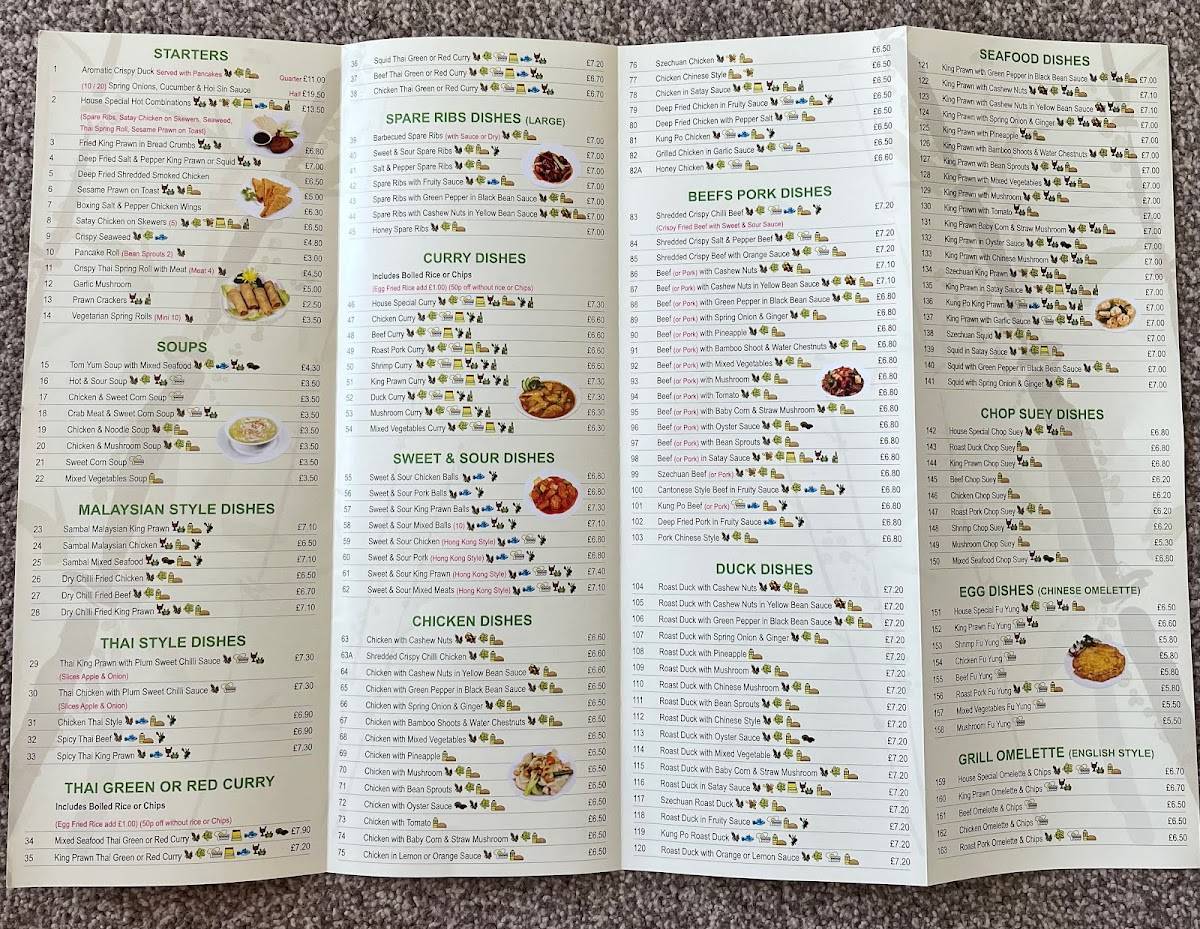 STARTERS
1 Aromatic Crispy Duck Served with Pancakes Quarter £11.00
(10 / 20) Spring Onions, Cucumber & Hoi Sin Sauce Half £19.50
2 House Special Hot Combinations £13.50
(Spare Ribs, Satay Chicken on Skewers, Seaweed,
Thai Spring Roll, Sesame Prawn on Toast)
3 Fried King Prawn in Bread Crumbs £6.80
4 Deep Fried Salt & Pepper King Prawn or Squid £7.00
5 Deep Fried Shredded Smoked Chicken £6.50
6 Sesame Prawn on Toast £5.00
7 Boxing Salt & Pepper Chicken Wings £6.30
8 Satay Chicken on Skewers (5) £6.50
9 Crispy Seaweed £4.80
10 Pancake Roll (Bean Sprouts 2) £3.00
11 Crispy Thai Spring Roll with Meat (Meat 4) £4.50
12 Garlic Mushroom £5.00
13 Prawn Crackers £2.50
14 Vegetarian Spring Rolls (Mini 10) £3.50
SOUPS
15 Tom Yum Soup with Mixed Seafood £4.30
16 Hot & Sour Soup £3.50
17 Chicken & Sweet Corn Soup £3.50
18 Crab Meat & Sweet Corn Soup £3.50
19 Chicken & Noodle Soup £3.50
20 Chicken & Mushroom Soup £3.50
21 Sweet Corn Soup £3.50
22 Mixed Vegetables Soup £3.50
MALAYSIAN STYLE DISHES
23 Sambal Malaysian King Prawn £7.10
24 Sambal Malaysian Chicken £6.50
25 Sambal Mixed Seafood £7.10
26 Dry Chilli Fried Chicken £6.50
27 Dry Chilli Fried Beef £6.70
28 Dry Chilli Fried King Prawn £7.10
THAI STYLE DISHES
29 Thai King Prawn with Plum Sweet Chilli Sauce £7.30
(Slices Apple & Onion)
30 Thai Chicken with Plum Sweet Chilli Sauce £7.30
(Slices Apple & Onion)
31 Chicken Thai Style £6.90
32 Spicy Thai Beef £6.90
33 Spicy Thai King Prawn £7.30
THAI GREEN OR RED CURRY
Includes Boiled Rice or Chips
(Egg Fried Rice add £1.00) (50p off without rice or Chips)
34 Mixed Seafood Thai Green or Red Curry £7.90
35 King Prawn Thai Green or Red Curry £7.20
36 Squid Thai Green or Red Curry £7.20
37 Beef Thai Green or Red Curry £6.70
38 Chicken Thai Green or Red Curry £6.70
SPARE RIBS DISHES (LARGE)
39 Barbecued Spare Ribs (with Sauce or Dry) £7.00
40 Sweet & Sour Spare Ribs £7.00
41 Salt & Pepper Spare Ribs £7.00
42 Spare Ribs with Fruity Sauce £7.00
43 Spare Ribs with Green Pepper in Black Bean Sauce £7.00
44 Spare Ribs with Cashew Nuts in Yellow Bean Sauce £7.00
45 Honey Spare Ribs £7.00
CURRY DISHES
Includes Boiled Rice or Chips
(Egg Fried Rice add £1.00) (50p off without rice or Chips)
46 House Special Curry £7.30
47 Chicken Curry £6.60
48 Beef Curry £6.60
49 Roast Pork Curry £6.60
50 Shrimp Curry £6.60
51 King Prawn Curry £7.30
52 Duck Curry £7.30
53 Mushroom Curry £6.30
54 Mixed Vegetables Curry £6.30
SWEET & SOUR DISHES
55 Sweet & Sour Chicken Balls £6.80
56 Sweet & Sour Pork Balls £6.80
57 Sweet & Sour King Prawn Balls £7.30
58 Sweet & Sour Mixed Balls (10) £7.10
59 Sweet & Sour Chicken (Hong Kong Style) £6.80
60 Sweet & Sour Pork (Hong Kong Style) £6.80
61 Sweet & Sour King Prawn (Hong Kong Style) £7.40
62 Sweet & Sour Mixed Meats (Hong Kong Style) £7.10
CHICKEN DISHES
63 Chicken with Cashew Nuts £6.60
63A Shredded Crispy Chilli Chicken £6.60
64 Chicken with Cashew Nuts in Yellow Bean Sauce £6.60
65 Chicken with Green Pepper in Black Bean Sauce £6.50
66 Chicken with Spring Onion & Ginger £6.50
67 Chicken with Bamboo Shoots & Water Chestnuts £6.50
68 Chicken with Mixed Vegetables £6.50
69 Chicken with Pineapple £6.50
70 Chicken with Mushroom £6.50
71 Chicken with Bean Sprouts £6.50
72 Chicken with Oyster Sauce £6.50
73 Chicken with Tomato £6.50
74 Chicken with Baby Corn & Straw Mushroom £6.50
75 Chicken in Lemon or Orange Sauce £6.50
76 Szechuan Chicken £6.50
77 Chicken Chinese Style £6.50
78 Chicken in Satay Sauce £6.50
79 Deep Fried Chicken in Fruity Sauce £6.50
80 Deep Fried Chicken with Pepper Salt £6.50
81 Kung Po Chicken £6.50
82 Grilled Chicken in Garlic Sauce £6.50
82A Honey Chicken £6.60
BEEFS PORK DISHES
83 Shredded Crispy Chilli Beef £7.20
(Crispy Fried Beef with Sweet & Sour Sauce)
84 Shredded Crispy Salt & Pepper Beef £7.20
85 Shredded Crispy Beef with Orange Sauce £7.20
86 Beef (or Pork) with Cashew Nuts £7.10
87 Beef (or Pork) with Cashew Nuts in Yellow Bean Sauce £7.10
88 Beef (or Pork) with Green Pepper in Black Bean Sauce £6.80
89 Beef (or Pork) with Spring Onion & Ginger £6.80
90 Beef (or Pork) with Pineapple £6.80
91 Beef (or Pork) with Bamboo Shoot & Water Chestnuts £6.80
92 Beef (or Pork) with Mixed Vegetables £6.80
93 Beef (or Pork) with Mushroom £6.80
94 Beef (or Pork) with Tomato £6.80
95 Beef (or Pork) with Baby Corn & Straw Mushroom £6.80
96 Beef (or Pork) with Oyster Sauce £6.80
97 Beef (or Pork) with Bean Sprouts £6.80
98 Beef (or Pork) in Satay Sauce £6.80
99 Szechuan Beef (or Pork) £6.80
100 Cantonese Style Beef in Fruity Sauce £6.80
101 Kung Po Beef (or Pork) £6.80
102 Deep Fried Pork in Fruity Sauce £6.80
103 Pork Chinese Style £6.80
DUCK DISHES
104 Roast Duck with Cashew Nuts £7.20
105 Roast Duck with Cashew Nuts in Yellow Bean Sauce £7.20
106 Roast Duck with Green Pepper in Black Bean Sauce £7.20
107 Roast Duck with Spring Onion & Ginger £7.20
108 Roast Duck with Pineapple £7.20
109 Roast Duck with Mushroom £7.20
110 Roast Duck with Chinese Mushroom £7.20
111 Roast Duck with Bean Sprouts £7.20
112 Roast Duck with Chinese Style £7.20
113 Roast Duck with Oyster Sauce £7.20
114 Roast Duck with Mixed Vegetable £7.20
115 Roast Duck with Baby Corn & Straw Mushroom £7.20
116 Roast Duck in Satay Sauce £7.20
117 Szechuan Roast Duck £7.20
118 Roast Duck in Fruity Sauce £7.20
119 Kung Po Roast Duck £7.20
120 Roast Duck with Orange or Lemon Sauce £7.20
SEAFOOD DISHES
121 King Prawn with Green Pepper in Black Bean Sauce £7.00
122 King Prawn with Cashew Nuts £7.10
123 King Prawn with Cashew Nuts in Yellow Bean Sauce £7.10
124 King Prawn with Spring Onion & Ginger £7.00
125 King Prawn with Pineapple £7.00
126 King Prawn with Bamboo Shoots & Water Chestnuts £7.00
127 King Prawn with Bean Sprouts £7.00
128 King Prawn with Mixed Vegetables £7.00
129 King Prawn with Mushroom £7.00
130 King Prawn with Tomato £7.00
131 King Prawn Baby Corn & Straw Mushroom £7.00
132 King Prawn in Oyster Sauce £7.00
133 King Prawn with Chinese Mushroom £7.00
134 Szechuan King Prawn £7.00
135 King Prawn in Satay Sauce £7.00
136 Kung Po King Prawn £7.00
137 King Prawn with Garlic Sauce £7.00
138 Szechuan Squid £7.00
139 Squid in Satay Sauce £7.00
140 Squid with Green Pepper in Black Bean Sauce £7.00
141 Squid with Spring Onion & Ginger £7.00
CHOP SUEY DISHES
142 House Special Chop Suey £6.80
143 Roast Duck Chop Suey £6.80
144 King Prawn Chop Suey £6.80
145 Beef Chop Suey £6.20
146 Chicken Chop Suey £6.20
147 Roast Pork Chop Suey £6.20
148 Shrimp Chop Suey £6.20
149 Mushroom Chop Suey £5.30
150 Mixed Seafood Chop Suey £6.80
EGG DISHES (CHINESE OMELETTE)
151 House Special Fu Yung £6.50
152 King Prawn Fu Yung £6.60
153 Shrimp Fu Yung £5.80
154 Chicken Fu Yung £5.80
155 Beef Fu Yung £5.80
156 Roast Pork Fu Yung £5.80
157 Mixed Vegetables Fu Yung £5.50
158 Mushroom Fu Yung £5.50
GRILL OMELETTE (ENGLISH STYLE)
159 House Special Omelette & Chips £6.70
160 King Prawn Omelette & Chips £6.70
161 Beef Omelette & Chips £6.50
162 Chicken Omelette & Chips £6.50
163 Roast Pork Omelette & Chips £6.50